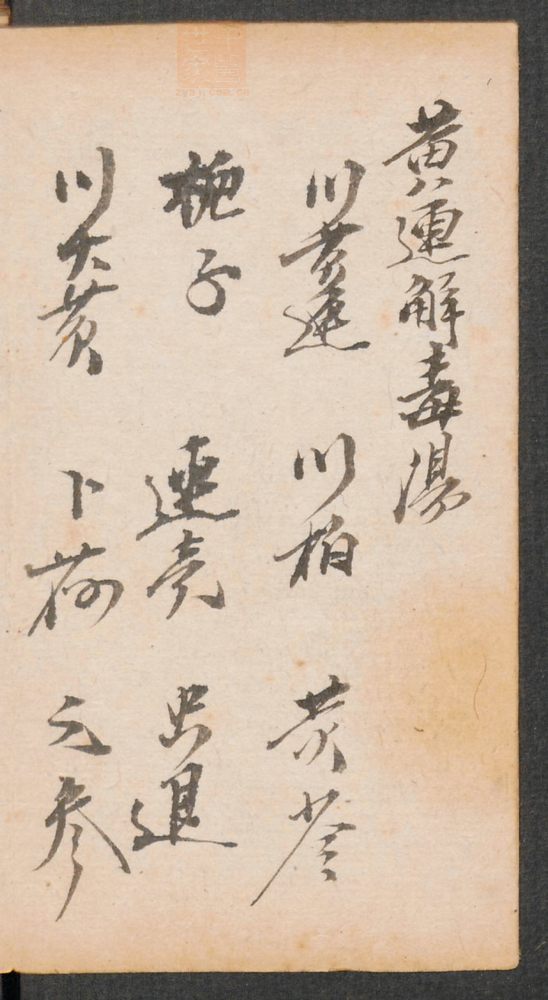 黄連解毒湯
川黄連 川柏 黄芩
栀子 連壳 虫退
川大黄 卜荷 元参